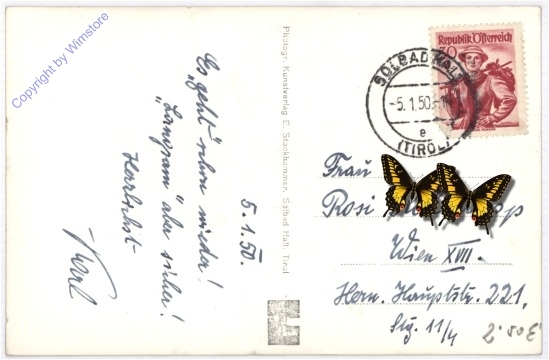 Copyright by Wimstore
Es „geht" schon wieder!
„Langsam" aber sicher!
Herzlichst
Karl
5.1.50.
Photogr. Kunstverlag E. Stockhammer, Solbad Hall, Tirol
Republik Österreich
SOLBAD HALL
-5.1.50
e
(TIROL)
Frau
Rosi
Wien XVII.
Hern. Hauptstr. 221,
Stg. 11/4